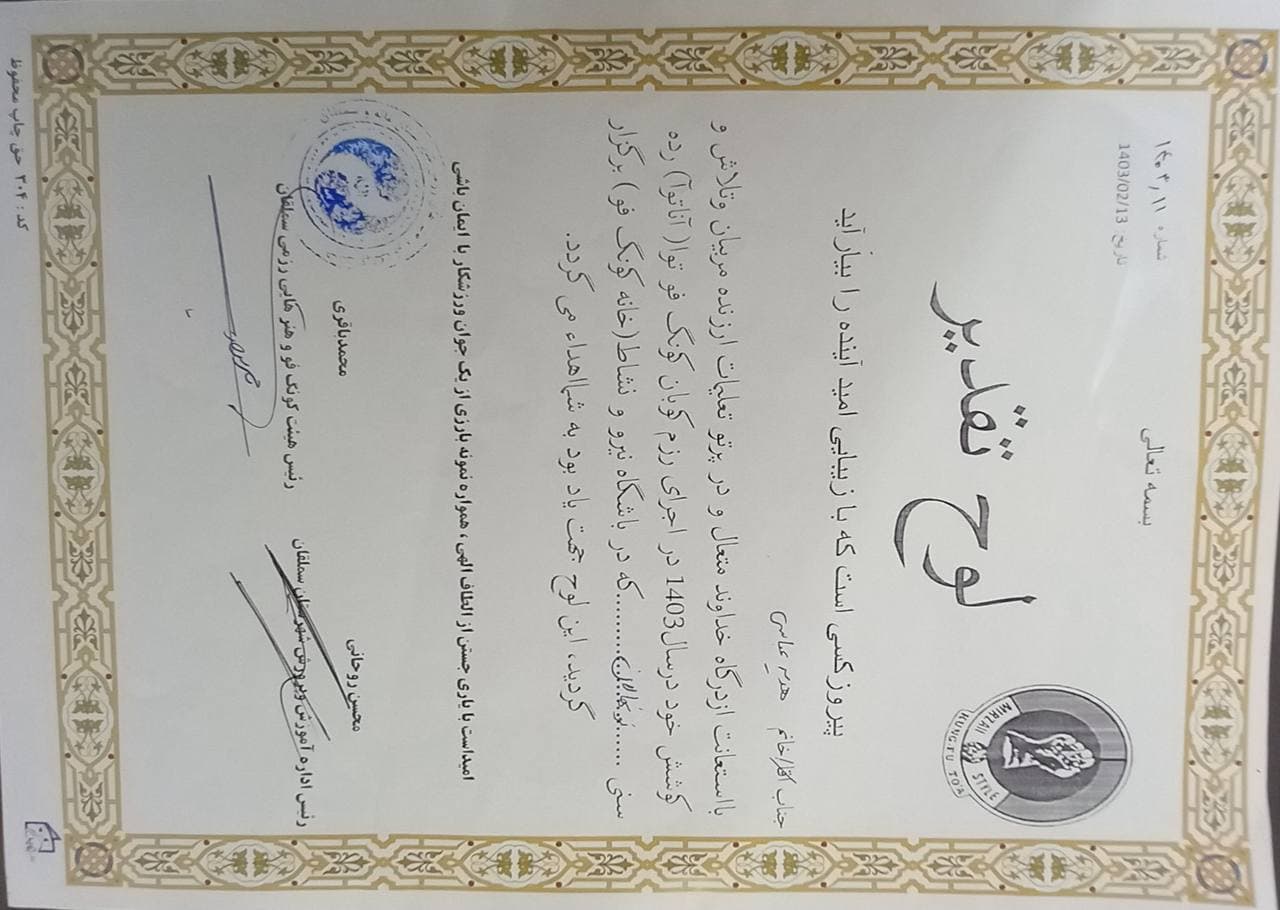 بسمه تعالی
شماره ۱۴۰۳,۱۱
تاریخ: 1403/02/13
MIRZAII STYLE
KUNG FU TO'A
لوح تقدیر
پیروز کسی است که با زیبایی امید آینده را بیاراید
جناب آقا/خانم هدیه عباسی
با استعانت ازدرگاه خداوند متعال و در پرتو تعلیات ارزنده مربیان وتلاش و
کوشش خود درسال1403 در اجرای رزم کوبان کونگ فو توا( آناتوآ) رده
سنی ...... نونهالان .........که در باشگاه نیرو و نشاط(خانه کونگ فو) برگزار
گردید، این لوح جهت یاد بود به شمااهداء می گردد.
امیداست با یاری جستن از الطاف الهی ، همواره نمونه بارزی از یک جوان ورزشکار با ایمان باشی
محسن روحانی
رئیس اداره آموزش وپرورش شهرستان سملقان
محمدباقری
رئیس هیئت کونگ فو و هنرهایی رزمی سملقان
کد : ۳۰۴ حق چاپ محفوظ